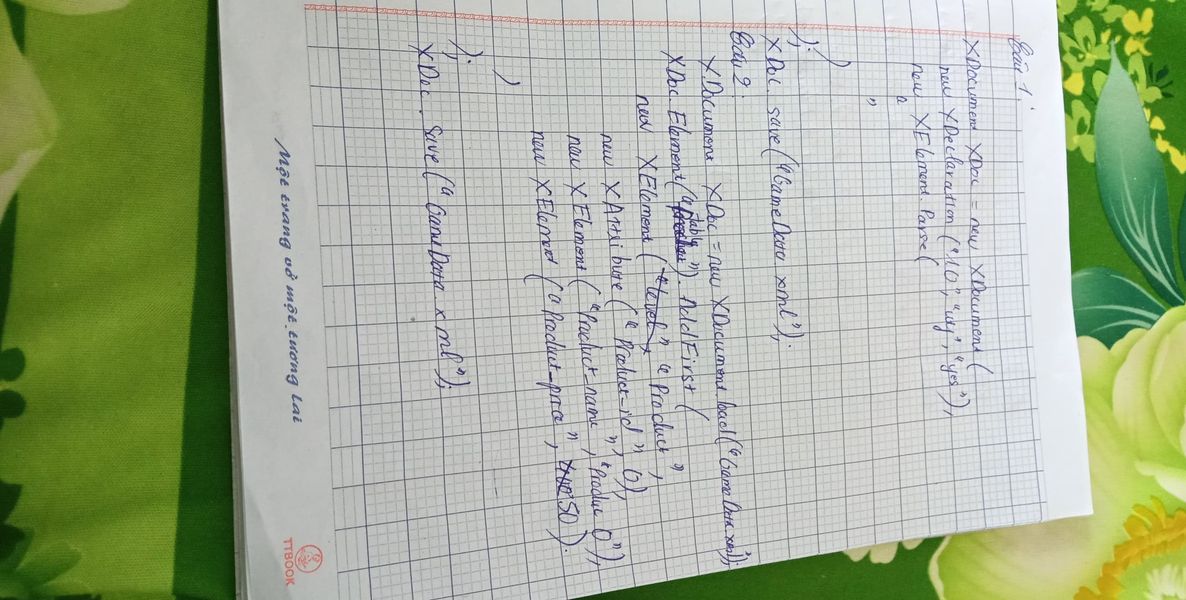 Câu 1:
XDocument XDoc = new XDocument(
new XDeclaration("1.0", "utf", "yes"),
new XElement.Parse(
"
"
)
);
XDoc.save("GameData xml");
Câu 2:
XDocument XDoc = new XDocument load("GameData.xml");
XDoc.Element("table").AddFirst(
new XElement("level" "Product",
new XAttribute("Product-id", 0),
new XElement("Product-name", "Produc 0"),
new XElement("Product-price", 50).
)
);
XDoc.Save("GameData xml");
Một trang vở một tương lai
TTBOOK